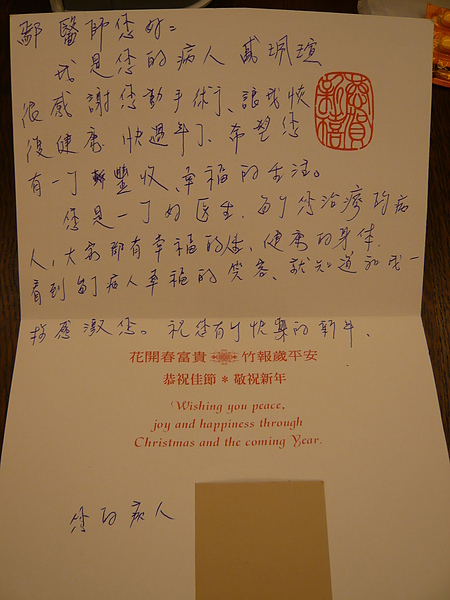 鄢醫師您好：
我是您的病人
很感謝您動手術了、讓我恢
復健康。快過年了、希望您
有一个豐收、幸福的生活。
您是一丁好医生、每丁你治療的病
人，大家都有幸福的、健康的身体、
看到每丁病人幸福的笑容、就知道和我一
樣感激您。祝您有丁快樂的新年、
恭賀新禧
花開春富貴 竹報歲平安
恭祝佳節 * 敬祝新年
Wishing you peace,
joy and happiness through
Christmas and the coming Year.
你的病人